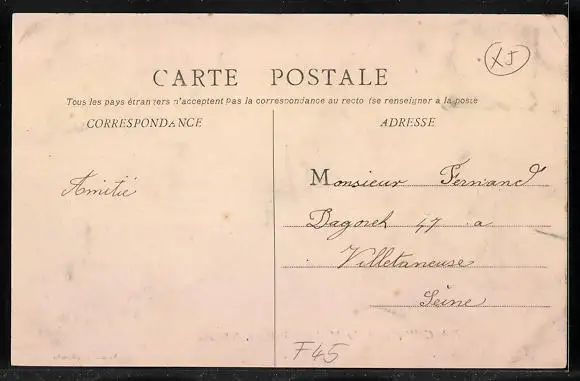 XJ
CARTE POSTALE
Tous les pays étrangers n'acceptent pas la correspondance au recto (se renseigner à la poste
CORRESPONDANCE
ADRESSE
Amitié
Monsieur Fernand
47 a
Villetaneuse
Seine
F45